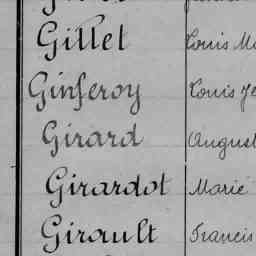 Gillet Louis
Ginferoy Louis
Girard August
Girardot Marie
Girault Francis